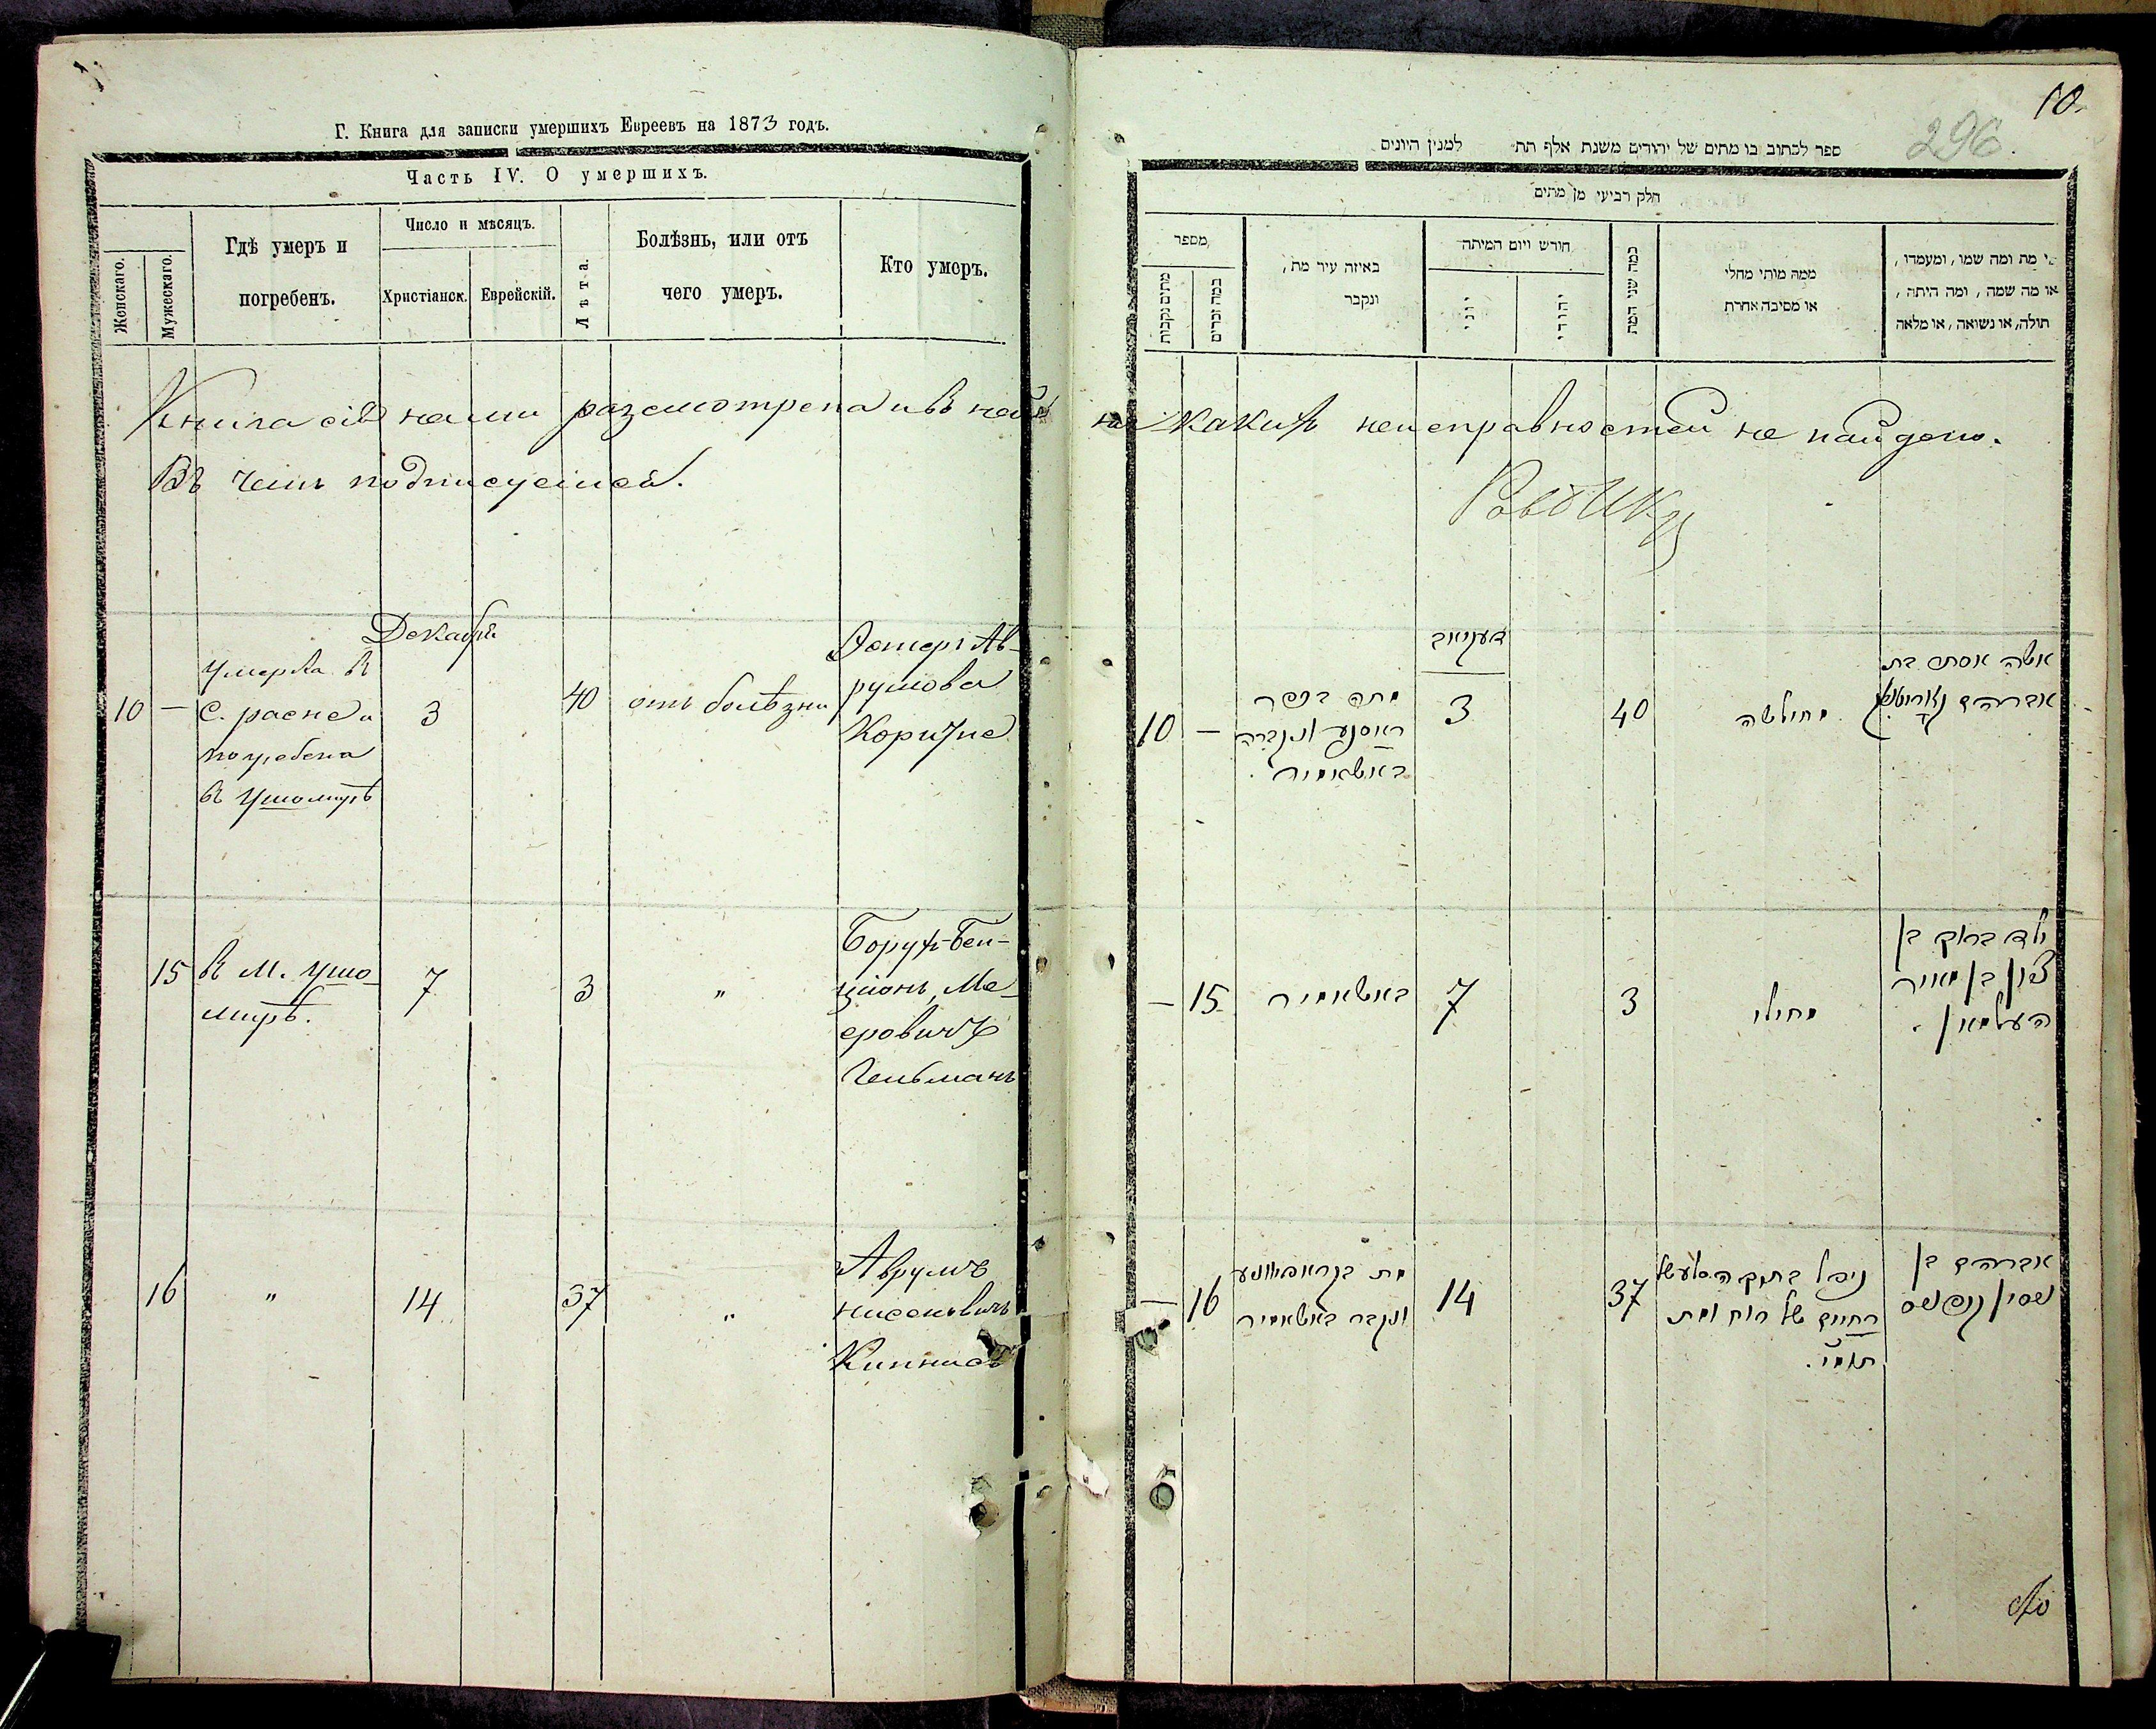 Г. Книга для записки умершихъ Евреевъ на 1873 годъ.
Часть IV. О умершихъ.
Женскаго.
Мужескаго.
Гдѣ умеръ и
погребенъ.
Число и мѣсяцъ.
Христіанск.
Еврейскій.
Лѣта.
Болѣзнь, или отъ
чего умеръ.
Кто умеръ.
Книга сія нами разсмотрена и въ ней
Въ чемъ подписуемся.
Декабрь
10 —
Умерла в
с. расне и
погребена
в Ушомирѣ
3
40
отъ болѣзни
Эстеръ Ав-
румова
15
в м. Ушо-
мирѣ.
7
3
"
Борух-Бен-
ціонъ Ме-
еровичъ
Гельманъ
16
"
14
37
"
Аврумъ
нисоновичъ
Кипнисъ
10.
296.
ספר לכתוב בו מתים של יהודים משנת אלף תת למנין היונים
חלק רביעי מן מתים
מספר
מתים נקבות
כמה זכרים
באיזה עיר מת,
ונקבר
חורש ויום המיתה
יוני
יהודי
כמה שני המת
ממה מותי מחלי
או מסיבה אחרת
מי מת ומה שמו, ומעמדו,
או מה שמה, ומה היתה,
תולה, או נשואה, או מלאה
какихъ неисправностей не найдено.
10 —
מתה בכפר
ונקברה
באשאמיר.
3
40
מחולשה
אשה אסתר בת
אברהם
— 15
באשאמיר
7
3
מחולי
ילד ברוך בן
ציון בן מאיר
העלמאן.
— 16
מת
ונקבר באשאמיר
14
37
נפל בתוך
של רוח ומת
אברהם בן
ניסן קיפניס